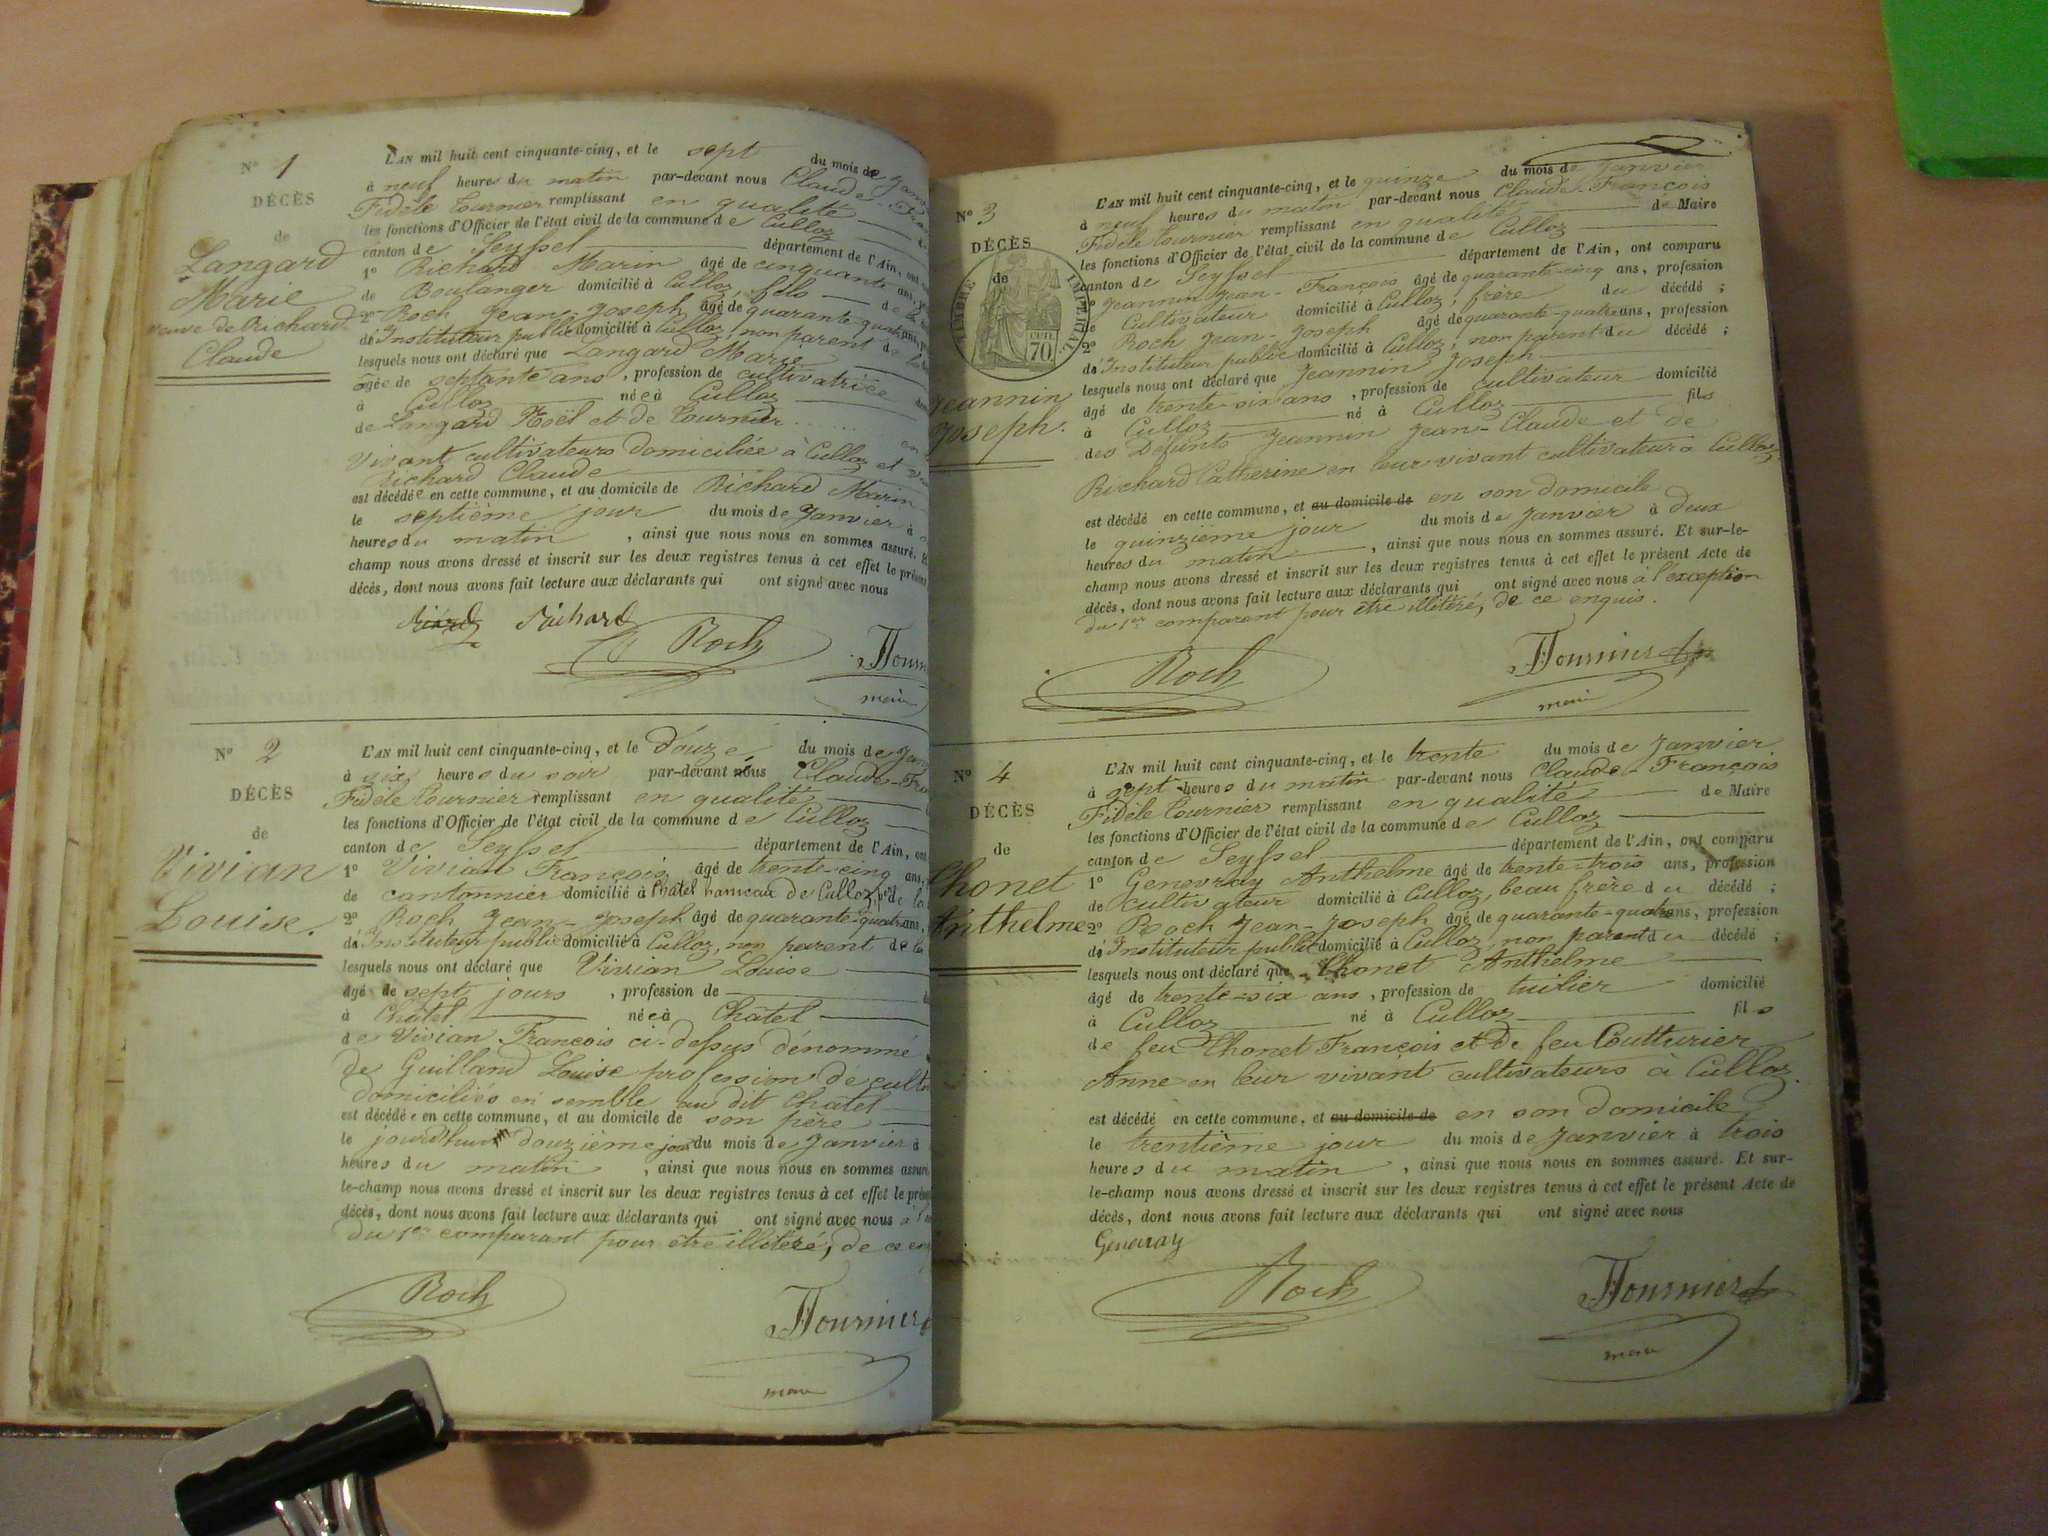 N° 1
DÉCÈS
de
Langard
Marie
veuve de Richard
Claude
L'AN mil huit cent cinquante-cinq, et le sept du mois de
à neuf heures du matin par-devant nous Claude-
Fidèle Tournier remplissant en qualité
les fonctions d'Officier de l'état civil de la commune de Culloz
canton de Seyssel département de l'Ain,
1° Richard Marin âgé de cinquante ans,
de Boulanger domicilié à Culloz, fils de la
2° Roch Jean-Joseph âgé de quarante-quatre ans,
de Instituteur public domicilié à Culloz, non parent de la
lesquels nous ont déclaré que Langard Marie
âgée de septante ans, profession de cultivatrice
à Culloz née à Culloz
de Langard Noël et de Tournier en
vivant cultivateurs domiciliée à Culloz et
Richard Claude
est décédée en cette commune, et au domicile de Richard Marin
le septième jour du mois de Janvier à
heures du matin, ainsi que nous nous en sommes assuré.
champ nous avons dressé et inscrit sur les deux registres tenus à cet effet le présent
décès, dont nous avons fait lecture aux déclarants qui ont signé avec nous
Richard
Roch
maire
N° 2
DÉCÈS
de
Vivian
Louise.
L'AN mil huit cent cinquante-cinq, et le douze du mois de
à six heures du soir par-devant nous Claude-
Fidèle Tournier remplissant en qualité
les fonctions d'Officier de l'état civil de la commune de Culloz
canton de Seyssel département de l'Ain,
1° Vivian François âgé de trente-cinq ans,
de cantonnier domicilié à Châtel hameau de Culloz, de la
2° Roch Jean-Joseph âgé de quarante-quatre ans,
de Instituteur public domicilié à Culloz, non parent de la
lesquels nous ont déclaré que Vivian Louise
âgé de sept jours, profession de
à Châtel née à Châtel
de Vivian François ci-dessus dénommé
de Guilland Louise profession de
domiciliés ensemble au dit Châtel
est décédée en cette commune, et au domicile de son père
le jourd'hui douzième jour du mois de Janvier à
heures du matin, ainsi que nous nous en sommes assuré
le-champ nous avons dressé et inscrit sur les deux registres tenus à cet effet le
décès, dont nous avons fait lecture aux déclarants qui ont signé avec nous à
du 1er comparant pour être illitéré, de ce
Roch
Tournier
maire
N° 3
DÉCÈS
de
TIMBRE IMPÉRIAL
70
Jeannin
Joseph.
L'AN mil huit cent cinquante-cinq, et le quinze du mois de Janvier
à neuf heures du matin par-devant nous Claude-François
Fidèle Tournier remplissant en qualité de Maire
les fonctions d'Officier de l'état civil de la commune de Culloz
canton de Seyssel département de l'Ain, ont comparu
1° Jeannin Jean-François âgé de quarante-cinq ans, profession
de Cultivateur domicilié à Culloz, frère du décédé;
2° Roch Jean-Joseph âgé de quarante-quatre ans, profession
de Instituteur public domicilié à Culloz, non parent du décédé;
lesquels nous ont déclaré que Jeannin Joseph
âgé de trente-six ans, profession de cultivateur domicilié
à Culloz né à Culloz fils
des Défunts Jeannin Jean-Claude et de
Richard Catherine en leur vivant cultivateurs à Culloz
est décédé en cette commune, et au domicile de en son domicile
le quinzième jour du mois de Janvier à deux
heures du matin, ainsi que nous nous en sommes assuré. Et sur-le-
champ nous avons dressé et inscrit sur les deux registres tenus à cet effet le présent Acte de
décès, dont nous avons fait lecture aux déclarants qui ont signé avec nous à l'exception
du 1er comparant pour être illitéré, de ce enquis.
Roch
Tournier
maire
N° 4
DÉCÈS
de
Chonet
Anthelme
L'AN mil huit cent cinquante-cinq, et le trente du mois de Janvier
à sept heures du matin par-devant nous Claude-François
Fidèle Tournier remplissant en qualité de Maire
les fonctions d'Officier de l'état civil de la commune de Culloz
canton de Seyssel département de l'Ain, ont comparu
1° Genevray Anthelme âgé de trente-trois ans, profession
de cultivateur domicilié à Culloz, beau frère du décédé;
2° Roch Jean-Joseph âgé de quarante-quatre ans, profession
de Instituteur public domicilié à Culloz, non parent du décédé;
lesquels nous ont déclaré que Chonet Anthelme
âgé de trente-six ans, profession de tuilier domicilié
à Culloz né à Culloz fils
de feu Chonet François et de feu Coutturier
Anne en leur vivant cultivateurs à Culloz.
est décédé en cette commune, et au domicile de en son domicile
le trentième jour du mois de Janvier à trois
heures du matin, ainsi que nous nous en sommes assuré. Et sur-
le-champ nous avons dressé et inscrit sur les deux registres tenus à cet effet le présent Acte de
décès, dont nous avons fait lecture aux déclarants qui ont signé avec nous
Genevray
Roch
Tournier
maire